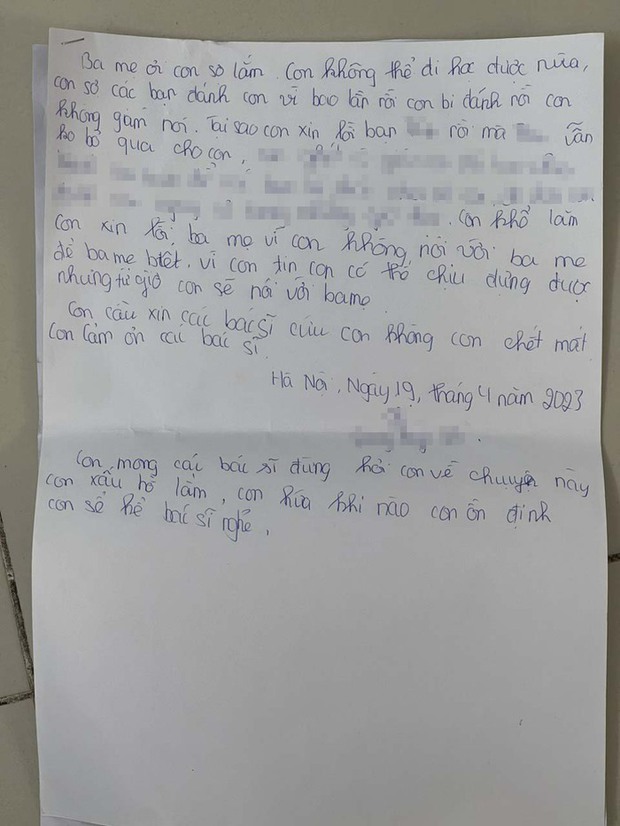 Ba mẹ ơi con sợ lắm. Con không thể đi học được nữa,
con sợ các bạn đánh con vì bao lần rồi con bị đánh rồi con
không gám nói. Tại sao con xin lỗi bạn rồi mà vẫn
ko bỏ qua cho con,
con khổ lắm
con xin lỗi ba mẹ vì con không nói với ba mẹ
để ba mẹ biết. vì con tin con có thể chịu đựng được
nhưng từ giờ con sẽ nói với ba mẹ
Con cầu xin các bác sĩ cứu con không con chết mất
Con cảm ơn các bác sĩ.
Hà Nội, Ngày 19, tháng 4 năm 2023
Con mong các bác sĩ đừng hỏi con về chuyện này
con xấu hổ lắm, con hứa khi nào con ổn định
con sẽ kể bác sĩ nghe.